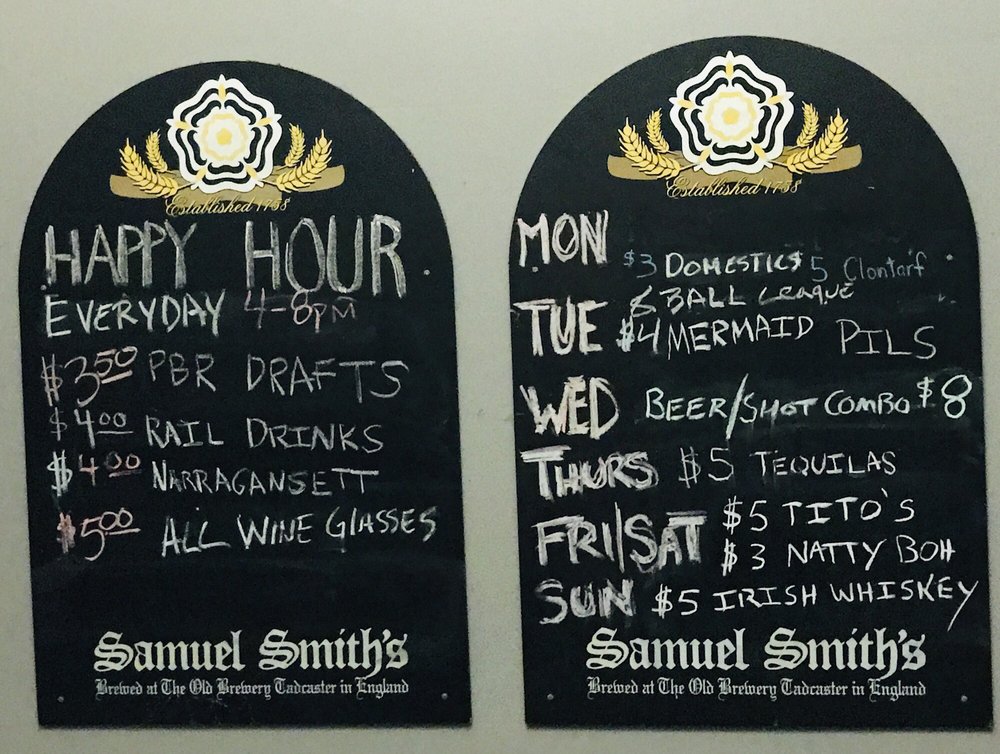 Established 1758
HAPPY HOUR
EVERYDAY 4-8PM
$3.50 PBR DRAFTS
$4.00 RAIL DRINKS
$4.00 NARRAGANSETT
$5.00 ALL WINE GLASSES
Samuel Smith's
Brewed at The Old Brewery Tadcaster in England
Established 1758
MON $3 DOMESTICS $5 Clontarf
& BALL LEAGUE
TUE $4 MERMAID PILS
WED BEER/SHOT COMBO $8
THURS $5 TEQUILAS
FRI/SAT $5 TITO'S
$3 NATTY BOH
SUN $5 IRISH WHISKEY
Samuel Smith's
Brewed at The Old Brewery Tadcaster in England